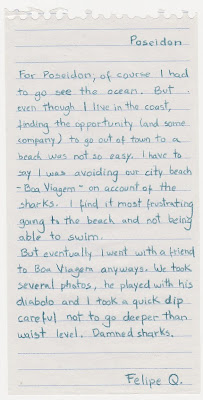 Poseidon
For Poseidon, of course I had
to go see the ocean. But
even though I live in the coast,
finding the opportunity (and some
company) to go out of town to a
beach was not so easy. I have to
say I was avoiding our city beach
- Boa Viagem - on account of the
sharks. I find it most frustrating
going to the beach and not being
able to swim.
But eventually I went with a friend
to Boa Viagem anyways. We took
several photos, he played with his
diabolo and I took a quick dip
careful not to go deeper than
waist level. Damned sharks.
Felipe Q.